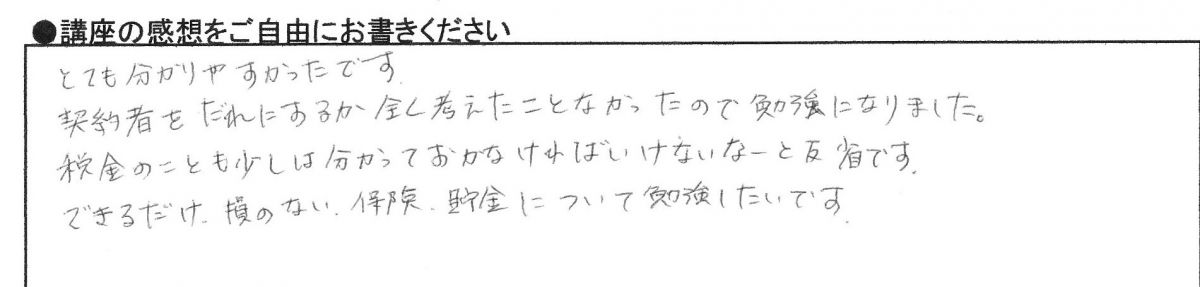 ●講座の感想をご自由にお書きください
とても分かりやすかったです.
契約者をだれにするか全く考えたことなかったので勉強になりました。
税金のことも少しは分かっておかなければいけないなーと反省です.
できるだけ、損のない、保険、貯金について勉強したいです.